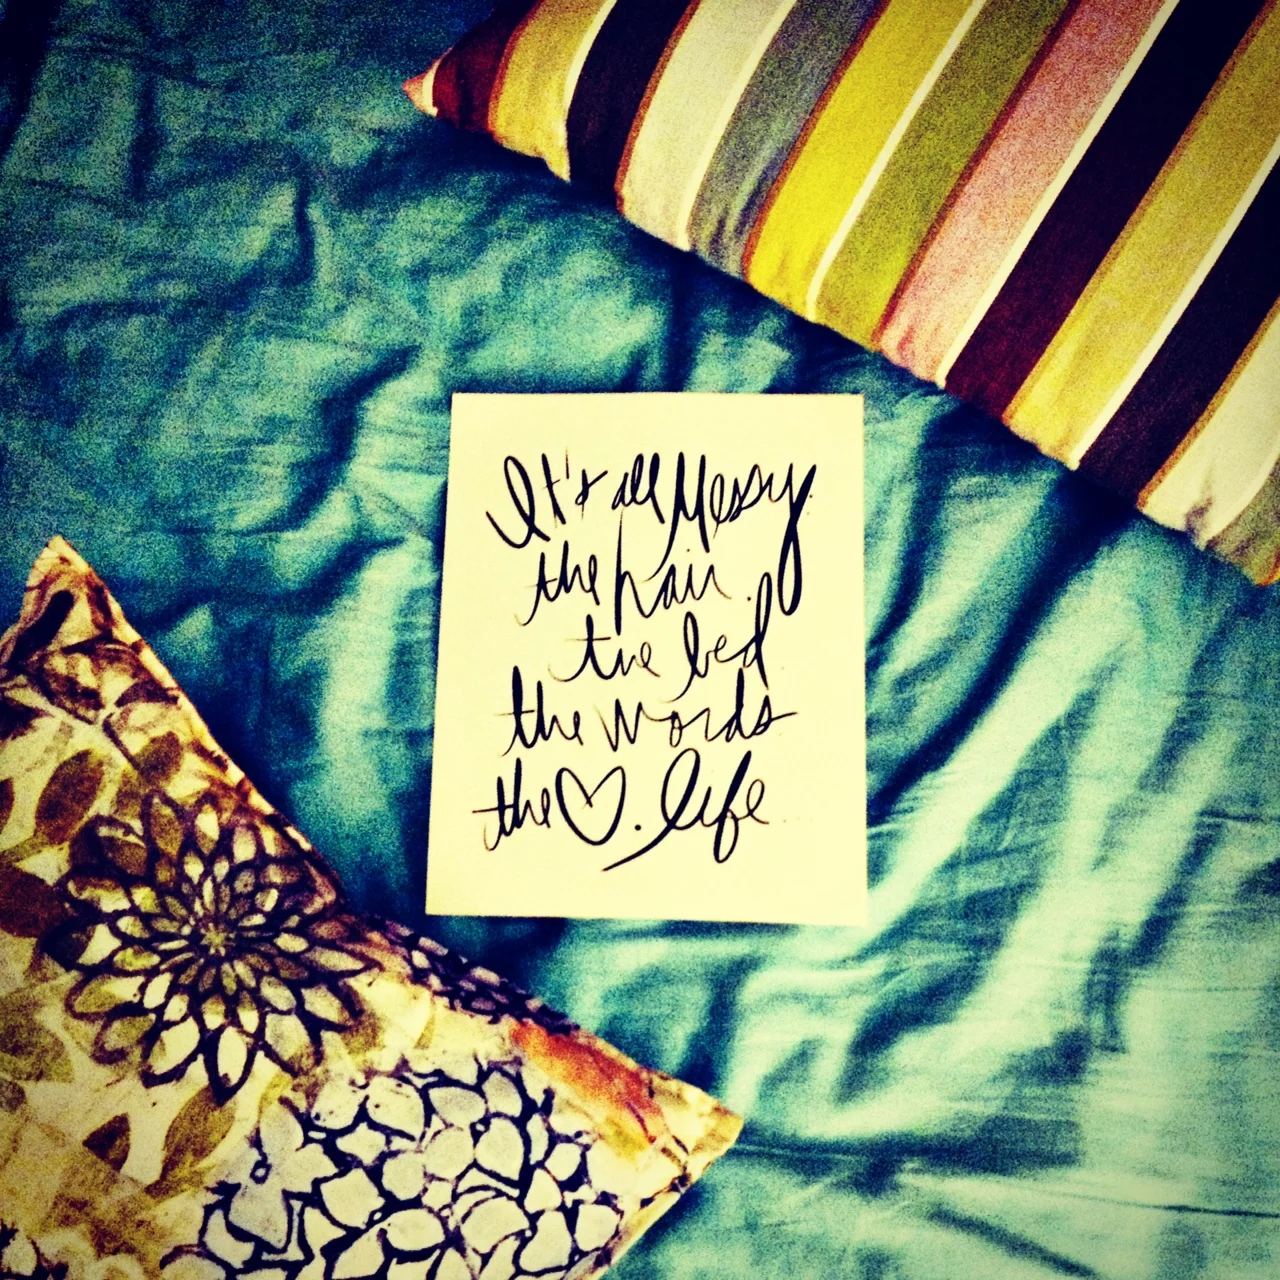 It's all Messy.
the hair.
the bed
the words
the ♡. life